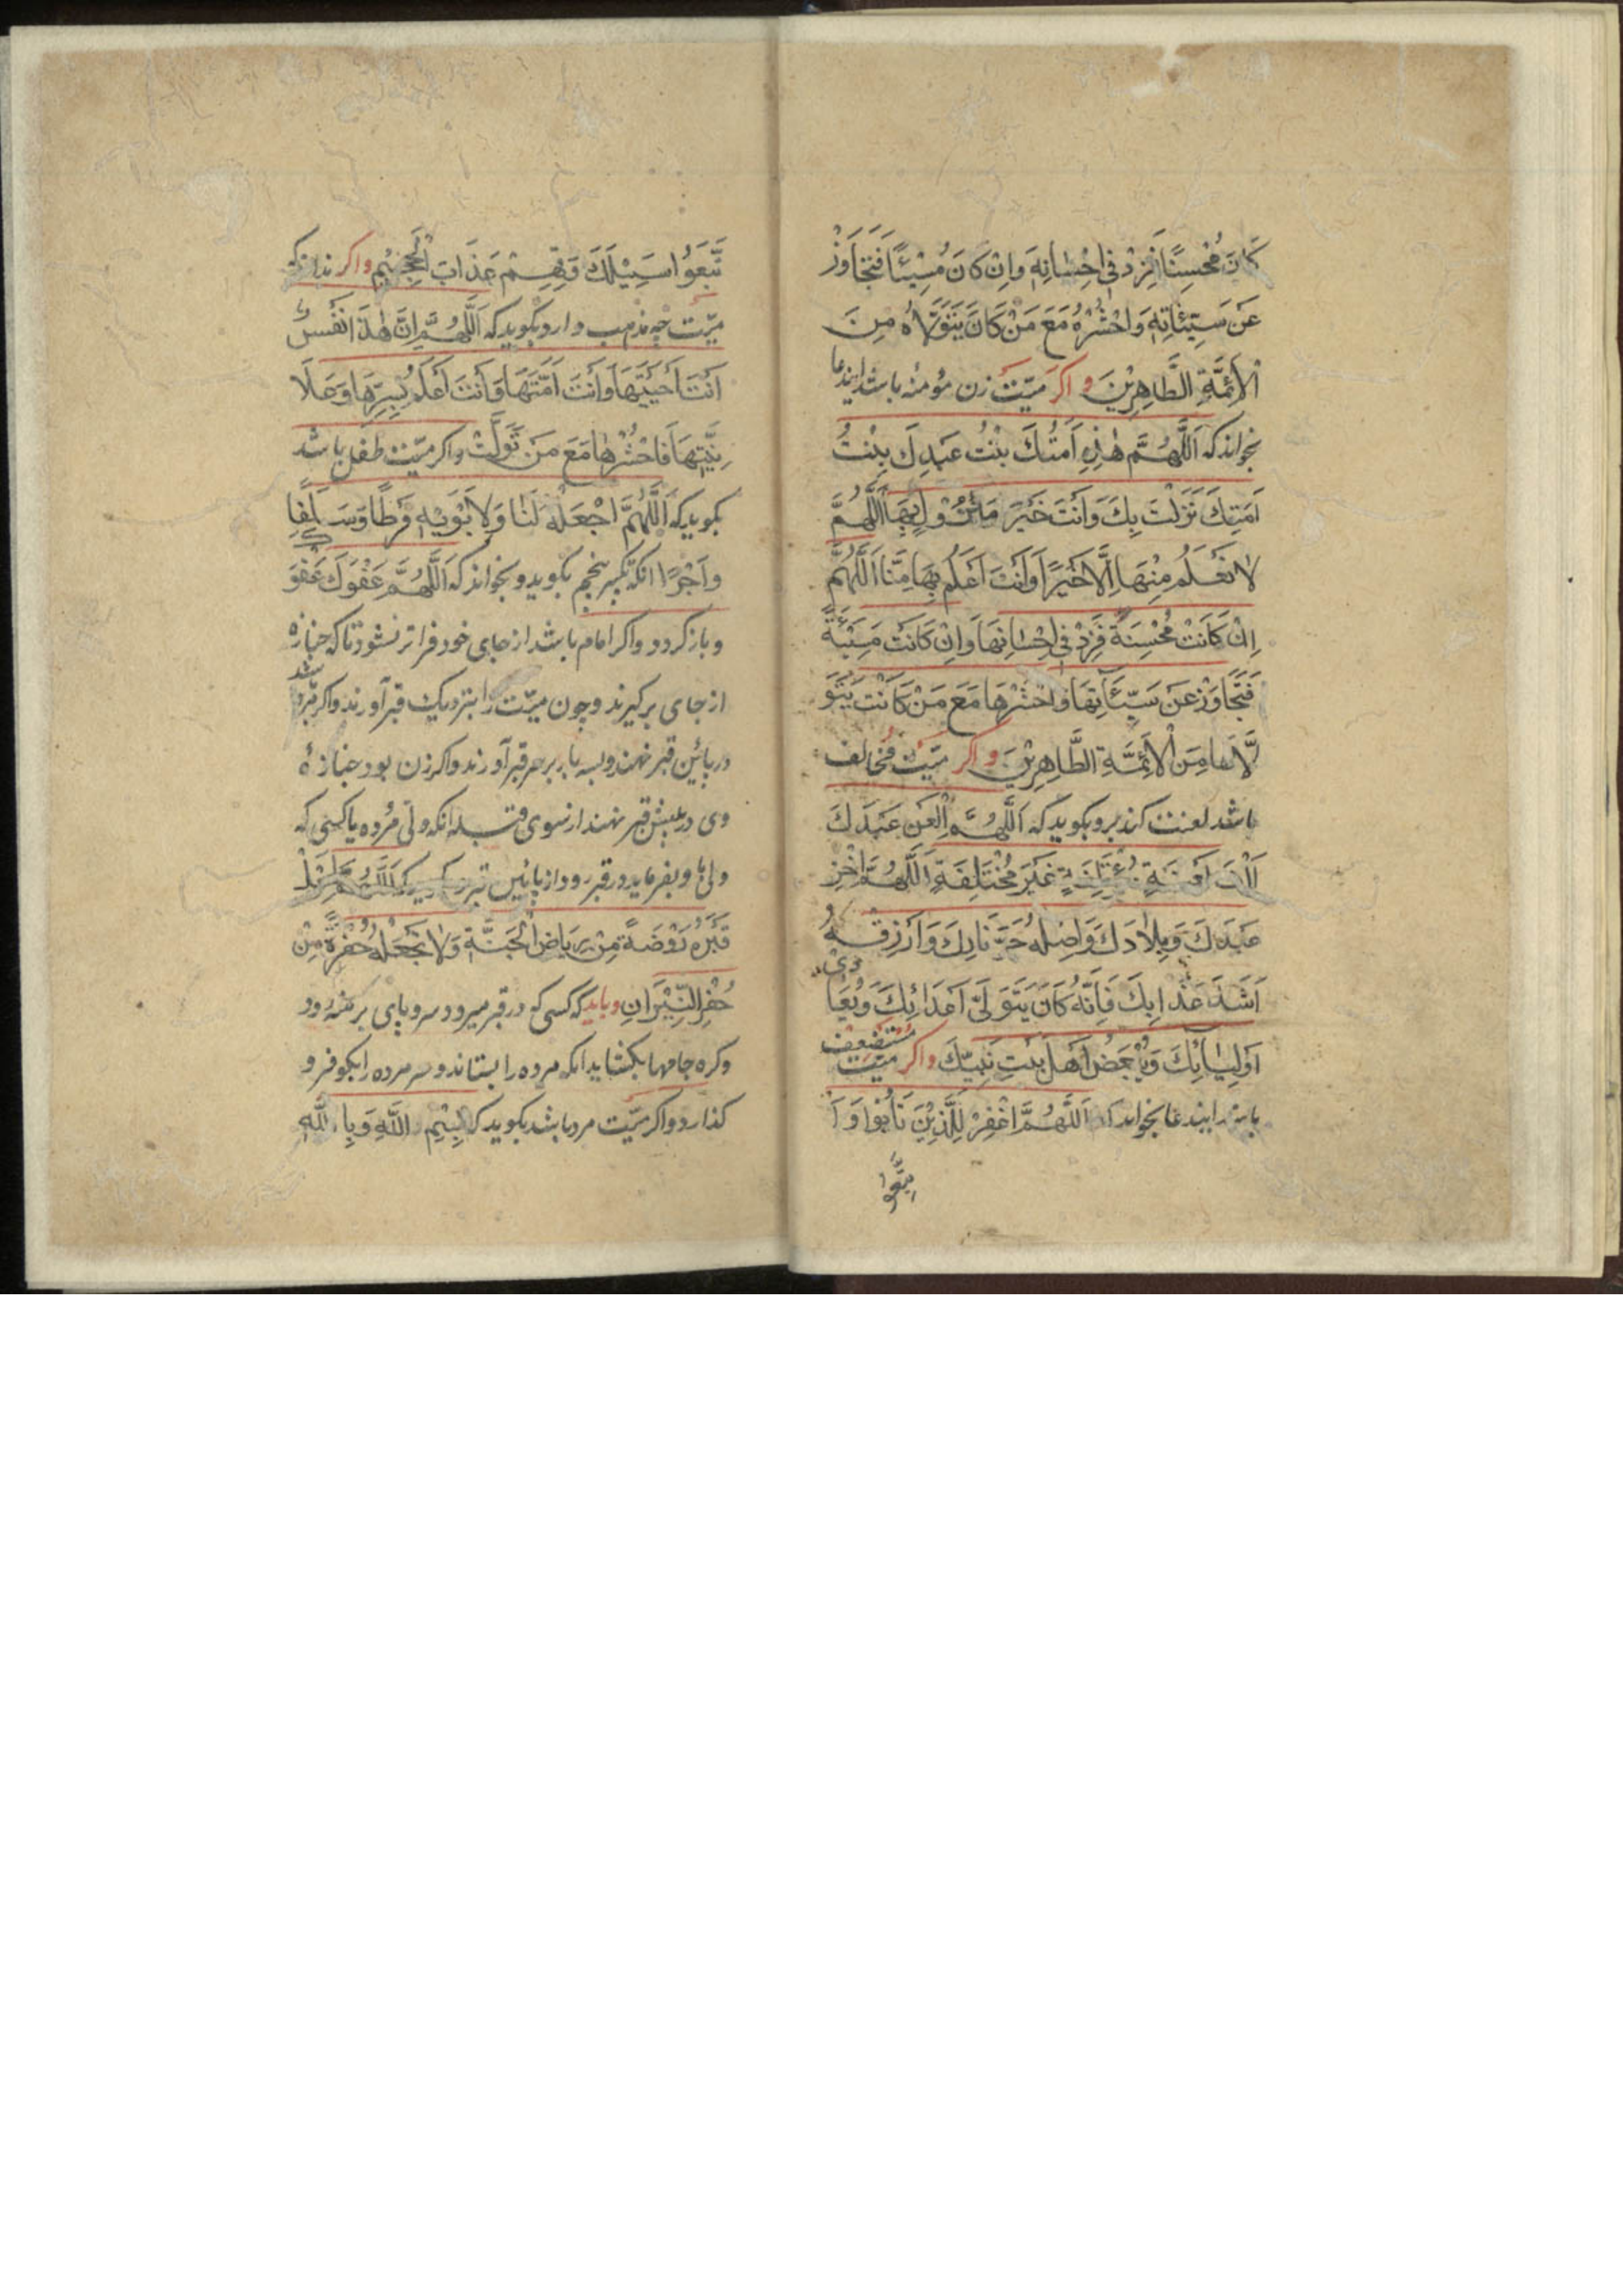 كَانَ مُحْسِنًا فَزِدْ فِي اِحْسَانِهِ وَاِنْ كَانَ مُسِيْئًا فَتَجَاوَزْ
عَنْ سَيِّئَاتِهِ وَاحْشُرْهُ مَعَ مَنْ كَانَ يَتَوَلَّاهُ مِنَ
الْاَئِمَّةِ الطَّاهِرِيْنَ واكر ميّت زن مؤمنه باشد ايندعا
بخواند كه اَللّٰهُمَّ هٰذِهِ اَمَتُكَ بِنْتُ عَبْدِكَ بِنْتُ
اَمَتِكَ نَزَلَتْ بِكَ وَاَنْتَ خَيْرَ مَنْزُوْلٍ بِهَا اَللّٰهُمَّ
لَا نَعْلَمُ مِنْهَا اِلَّا خَيْرًا وَاَنْتَ اَعْلَمُ بِهَا مِنَّا اَللّٰهُمَّ
اِنْ كَانَتْ مُحْسِنَةً فَزِدْ فِي اِحْسَانِهَا وَاِنْ كَانَتْ مُسِيْئَةً
فَتَجَاوَزْ عَنْ سَيِّئَاتِهَا وَاحْشُرْهَا مَعَ مَنْ كَانَتْ يَتَوَ
لَّاهَا مِنَ الْاَئِمَّةِ الطَّاهِرِيْنَ واكر ميّت مُخالف
باشد لعنت كند برو بكويد كه اَللّٰهُمَّ الْعَنْ عَبْدَكَ
اَلْفَ لَعْنَةٍ مُؤْتَلِفَةٍ غَيْرَ مُخْتَلِفَةٍ اَللّٰهُمَّ اخْزِ
عَبْدَكَ وَبِلَادَكَ وَاَصْلِهِ حَرَّ نَارِكَ وَارْزُقْهُ
اَشَدَّ عَذَابِكَ فَاِنَّهُ كَانَ يَتَوَلَّى اَعْدَائِكَ وَيُعَا دى
اَوْلِيَائِكَ وَيُبْغِضُ اَهْلَ بَيْتِ نَبِيِّكَ واكر ميّت مستضعف
باشد ايندعا بخواند كه اَللّٰهُمَّ اغْفِرْ لِلَّذِيْنَ تَابُوا وَا
تَّبَعُوا
تَّبَعُوا سَبِيْلَكَ وَقِهِمْ عَذَابَ الْجَحِيْمِ واكر نداند كه
ميّت چه مذهب دارد بكويد كه اَللّٰهُمَّ اِنَّ هٰذَا نَفْسٌ
اَنْتَ اَحْيَيْتَهَا وَاَنْتَ اَمَتَّهَا وَاَنْتَ اَعْلَمُ بِسِرِّهَا وَعَلَا
نِيَّتِهَا فَاحْشُرْهَا مَعَ مَنْ تَوَلَّتْ واكر ميّت طفل باشد
بكويد كه اَللّٰهُمَّ اجْعَلْهُ لَنَا وَلِاَبَوَيْهِ فَرَطًا وَسَلَفًا
وَاَجْرًا انكه تكبير پنجم بكويد و بخواند كه اَللّٰهُمَّ عَفْوَكَ عَفْوَكَ
و باز كردد واكر امام باشد از جاى خود فراتر نشود تا كه جنازه
از جاى بركيرند و چون ميّت را بنزديك قبر آورند واكر مرد باشد
در پائين قبر نهند و بسه بار بر سر قبر آورند واكر زن بود جنازهٔ
وى در پيش قبر نهند از سوى قبله انكه ولى مُرده يا كسى كه
ولى او بفرمايد در قبر رود از پائين قبر اَللّٰهُمَّ اجْعَلْ
قَبْرَهُ رَوْضَةً مِنْ رِيَاضِ الْجَنَّةِ وَلَا تَجْعَلْهُ حُفْرَةً مِنْ
حُفَرِ النِّيْرَانِ وبايد كه كسى كه در قبر ميرود سر و پاى برهنه رود
و كره جامها بكشايد انكه مرده را بستاند و سر مرده را بكو فرو
كذارد واكر ميّت مرد باشد بكويد كه بِسْمِ اللّٰهِ وَبِاللّٰهِ